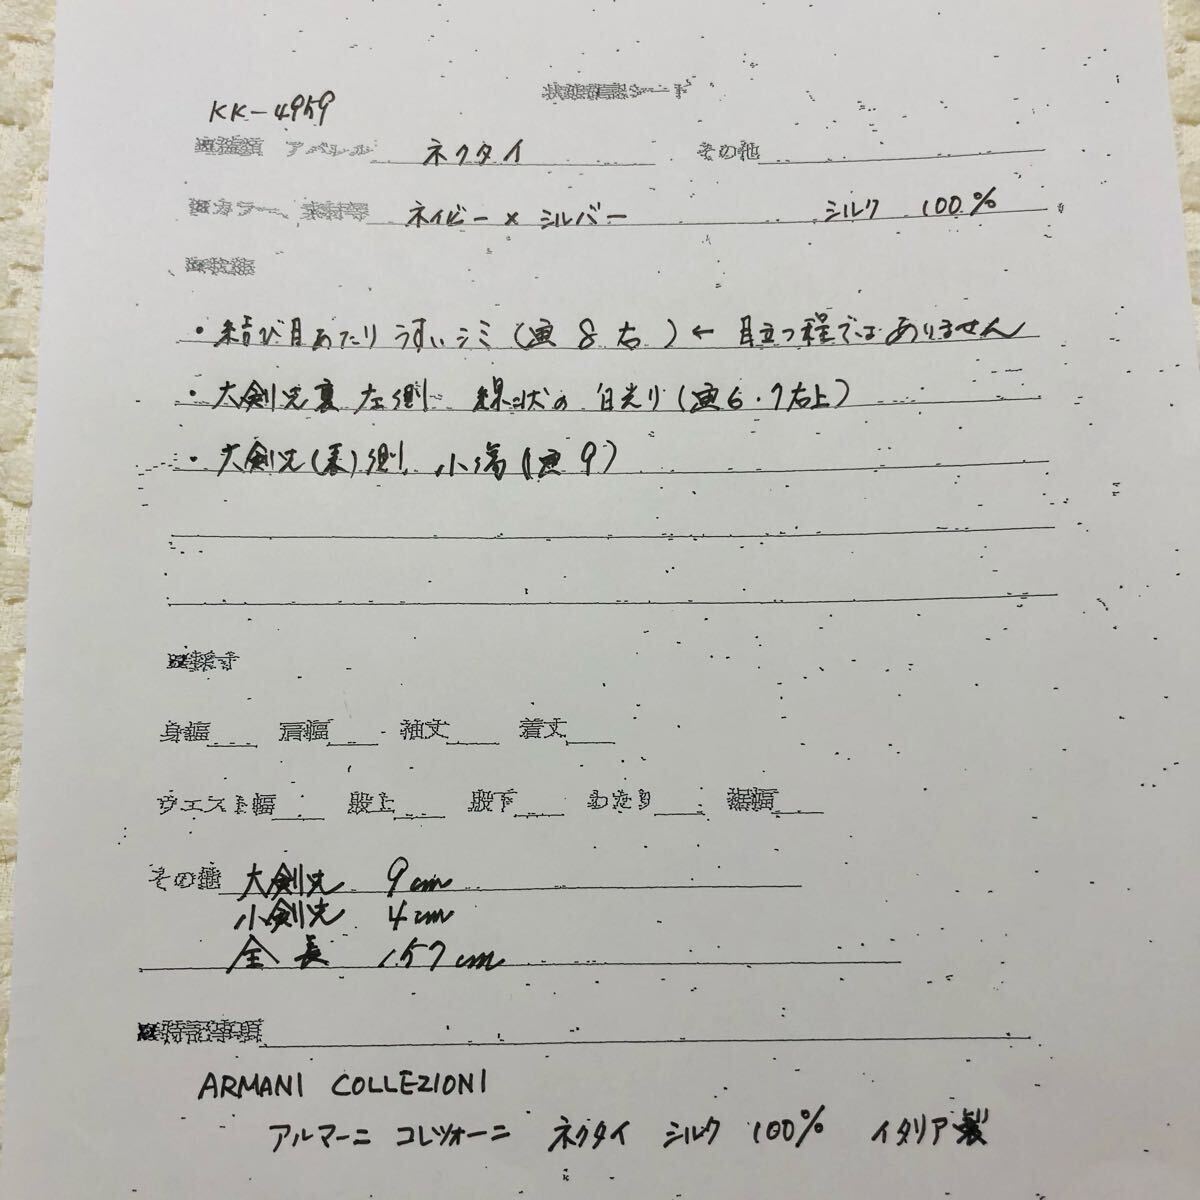 状態確認シート
KK-4959
■種類 アパレル ネクタイ その他
■カラー、素材等 ネイビー × シルバー シルク 100%
■状態
・結び目あたり うすいシミ (画 8 右 ) ← 目立つ程ではありません
・大剣先裏 左側 線状の 白光り (画 6・7 右上)
・大剣先(表)側 小傷 (画 9)
■採寸
身幅 肩幅 袖丈 着丈
ウエスト幅 股上 股下 わたり 裾幅
その他 大剣先 9cm
小剣先 4cm
全長 157cm
■特記事項
ARMANI COLLEZIONI
アルマーニ コレツォーニ ネクタイ シルク 100% イタリア製